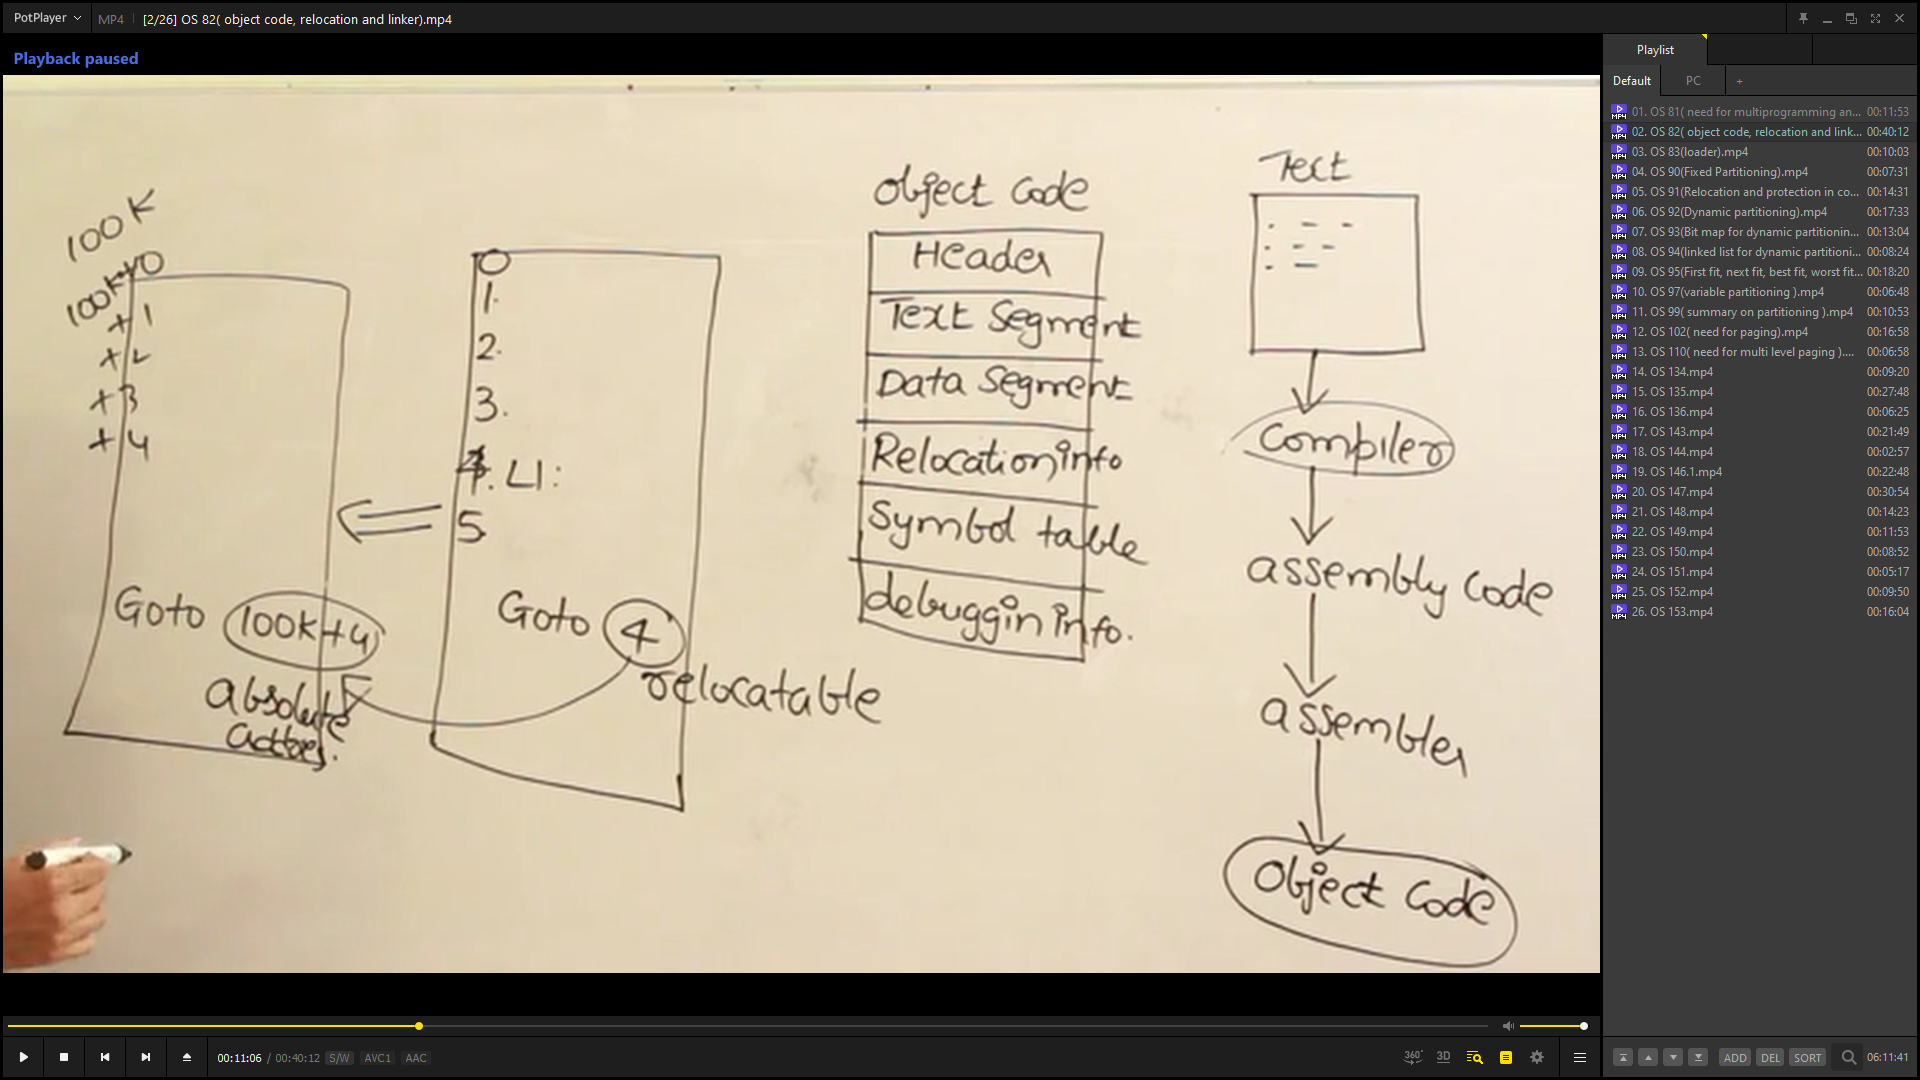 PotPlayer
MP4
[2/26] OS 82( object code, relocation and linker).mp4
Playback paused
100K
100K+0
+1
+2
+3
+4
Goto 100K+4
absolute
0
1.
2.
3.
4. L1:
5
Goto 4
relocatable
object code
Header
Text Segment
Data Segment
Relocation info
Symbol table
debuggin info.
Text
Compiler
assembly code
assembler
object code
00:11:06 / 00:40:12 S/W AVC1 AAC
360° 3D
Playlist
Default PC +
01. OS 81( need for multiprogramming an... 00:11:53
02. OS 82( object code, relocation and link... 00:40:12
03. OS 83(loader).mp4 00:10:03
04. OS 90(Fixed Partitioning).mp4 00:07:31
05. OS 91(Relocation and protection in co... 00:14:31
06. OS 92(Dynamic partitioning).mp4 00:17:33
07. OS 93(Bit map for dynamic partitionin... 00:13:04
08. OS 94(linked list for dynamic partitioni... 00:08:24
09. OS 95(First fit, next fit, best fit, worst fit... 00:18:20
10. OS 97(variable partitioning ).mp4 00:06:48
11. OS 99( summary on partitioning ).mp4 00:10:53
12. OS 102( need for paging).mp4 00:16:58
13. OS 110( need for multi level paging ).... 00:06:58
14. OS 134.mp4 00:09:20
15. OS 135.mp4 00:27:48
16. OS 136.mp4 00:06:25
17. OS 143.mp4 00:21:49
18. OS 144.mp4 00:02:57
19. OS 146.1.mp4 00:22:48
20. OS 147.mp4 00:30:54
21. OS 148.mp4 00:14:23
22. OS 149.mp4 00:11:53
23. OS 150.mp4 00:08:52
24. OS 151.mp4 00:05:17
25. OS 152.mp4 00:09:50
26. OS 153.mp4 00:16:04
ADD DEL SORT 06:11:41